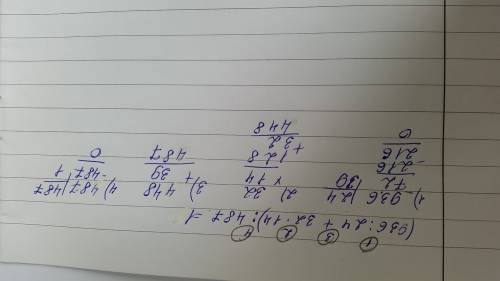 ① ③ ② ④
(936:24+32·14):487=1
1) -936 |24
72 |39
-216
216
0
2) 32
×14
+128
32
448
3) +448
39
487
4) -487 |487
487 1
0